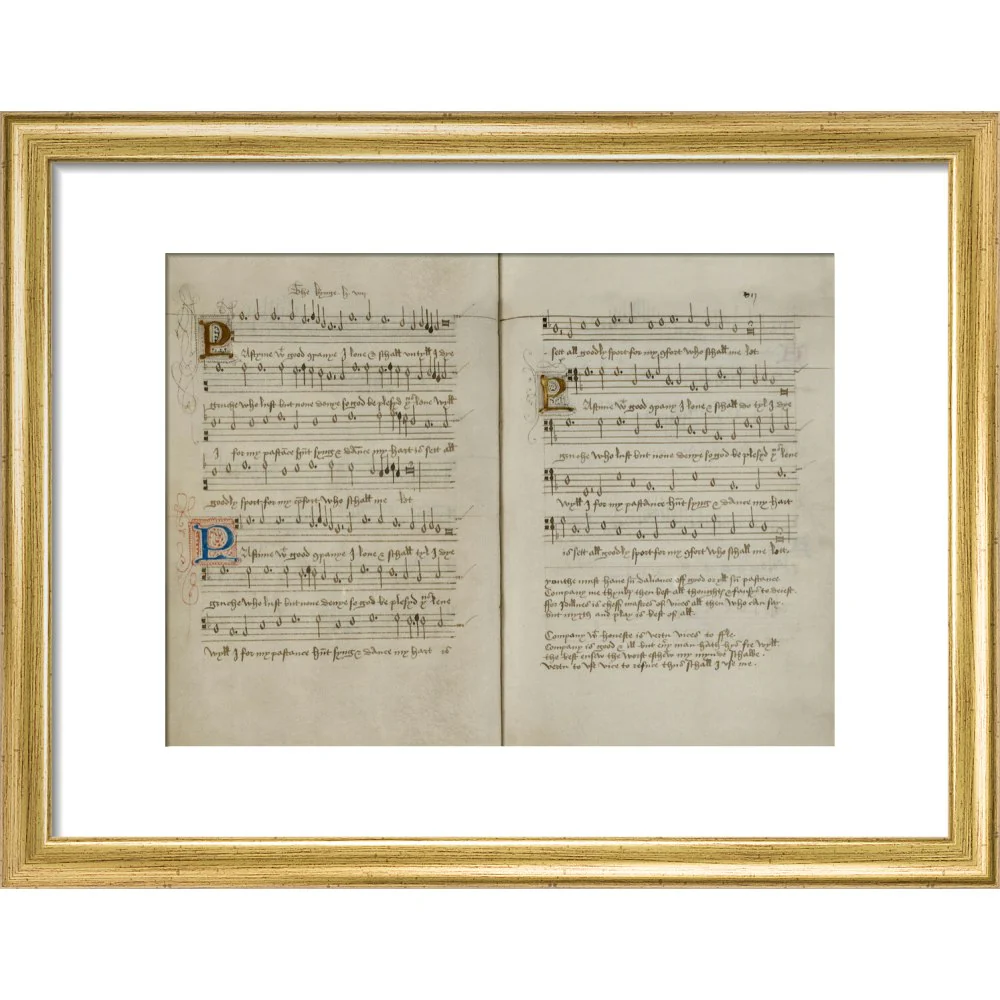 The kynge h viij
PAstyme wt good ɔpanye I loue & schall vntyll I dye
gruche who lust but none denye so god be plesyd yus leue wyll
I for my pastace hūt syng & daūce my hart is sett all
goodly sport for my ɔfort who schall me let
PAstyme wt good ɔpanye I loue & schall tyl I dye
gruche who lust but none denye so god be plesyd yus leue
wyll I for my pastance hūt syng & dance my hart is
sett all goodly sport for my ɔfort who schall me let
PAstyme wt good ɔpany I loue & schall do tyl I dye
gruche who lust but none denye so god be plesyd yus leue
wyll I for my pastance hūt syng & dance my hart
is sett all goodly sport for my ɔfort who schall me lett
youthe must haue sū daliance off good or yll sū pastance
Company me thynkes then best all thoughts & fansys to deiest
ffor Idillnes is cheff mastres of vices all then who can say
but myrth and play is best of all
Company wt honeste is vertu vices to ffle
Company is good & ill but euery man hath hys fre wyll
the best ensew the worst eschew my mynde schalbe
vertu to vse vice to refuce thus schall I vse me